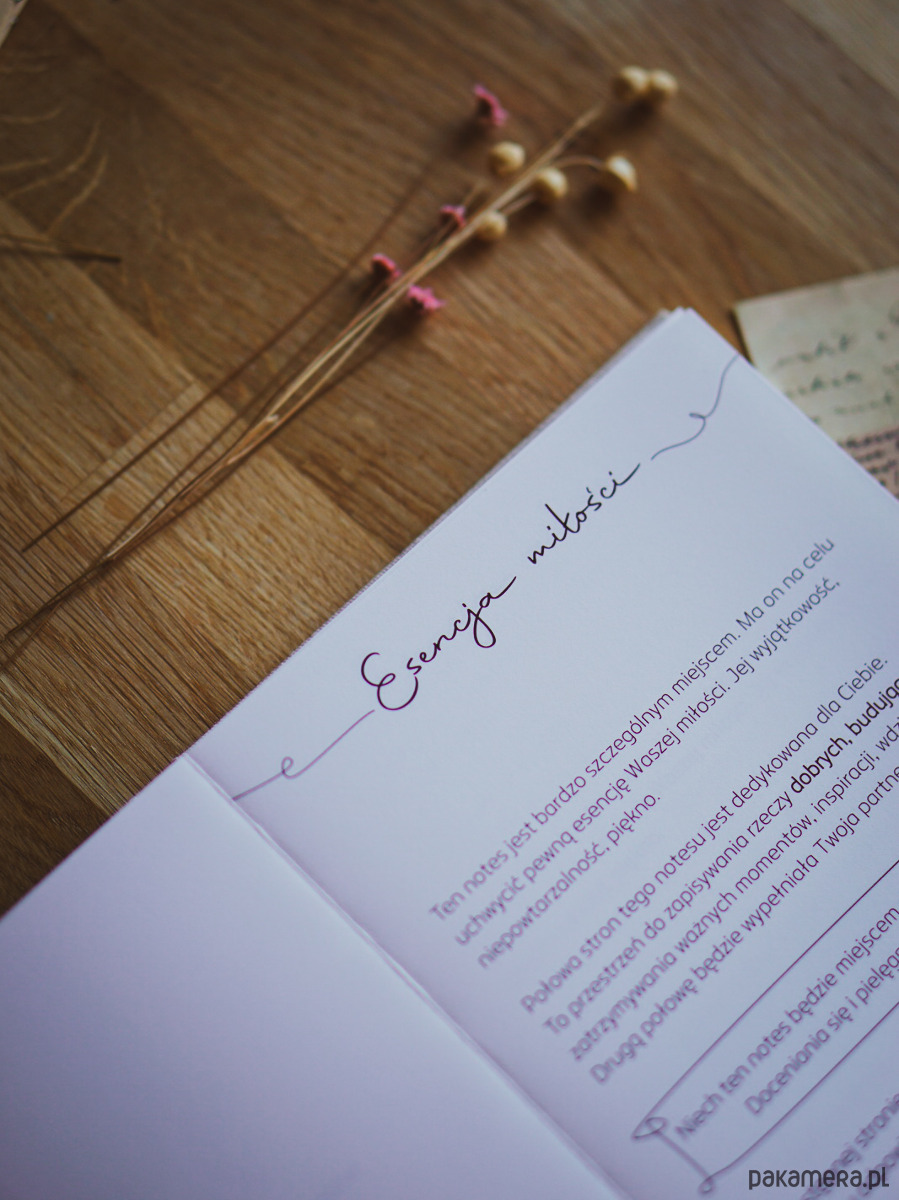 Esencja miłości
Ten notes jest bardzo szczególnym miejscem. Ma on na celu
uchwycić pewną esencję Waszej miłości. Jej wyjątkowość,
niepowtarzalność, piękno.
Połowa stron tego notesu jest dedykowana dla Ciebie.
To przestrzeń do zapisywania rzeczy dobrych, budując
zatrzymywania ważnych momentów, inspiracji, wdz
Drugą połowę będzie wypełniała Twoja partne
Niech ten notes będzie miejscem
Doceniania się i pielęg
nej stronie
pakamera.pl